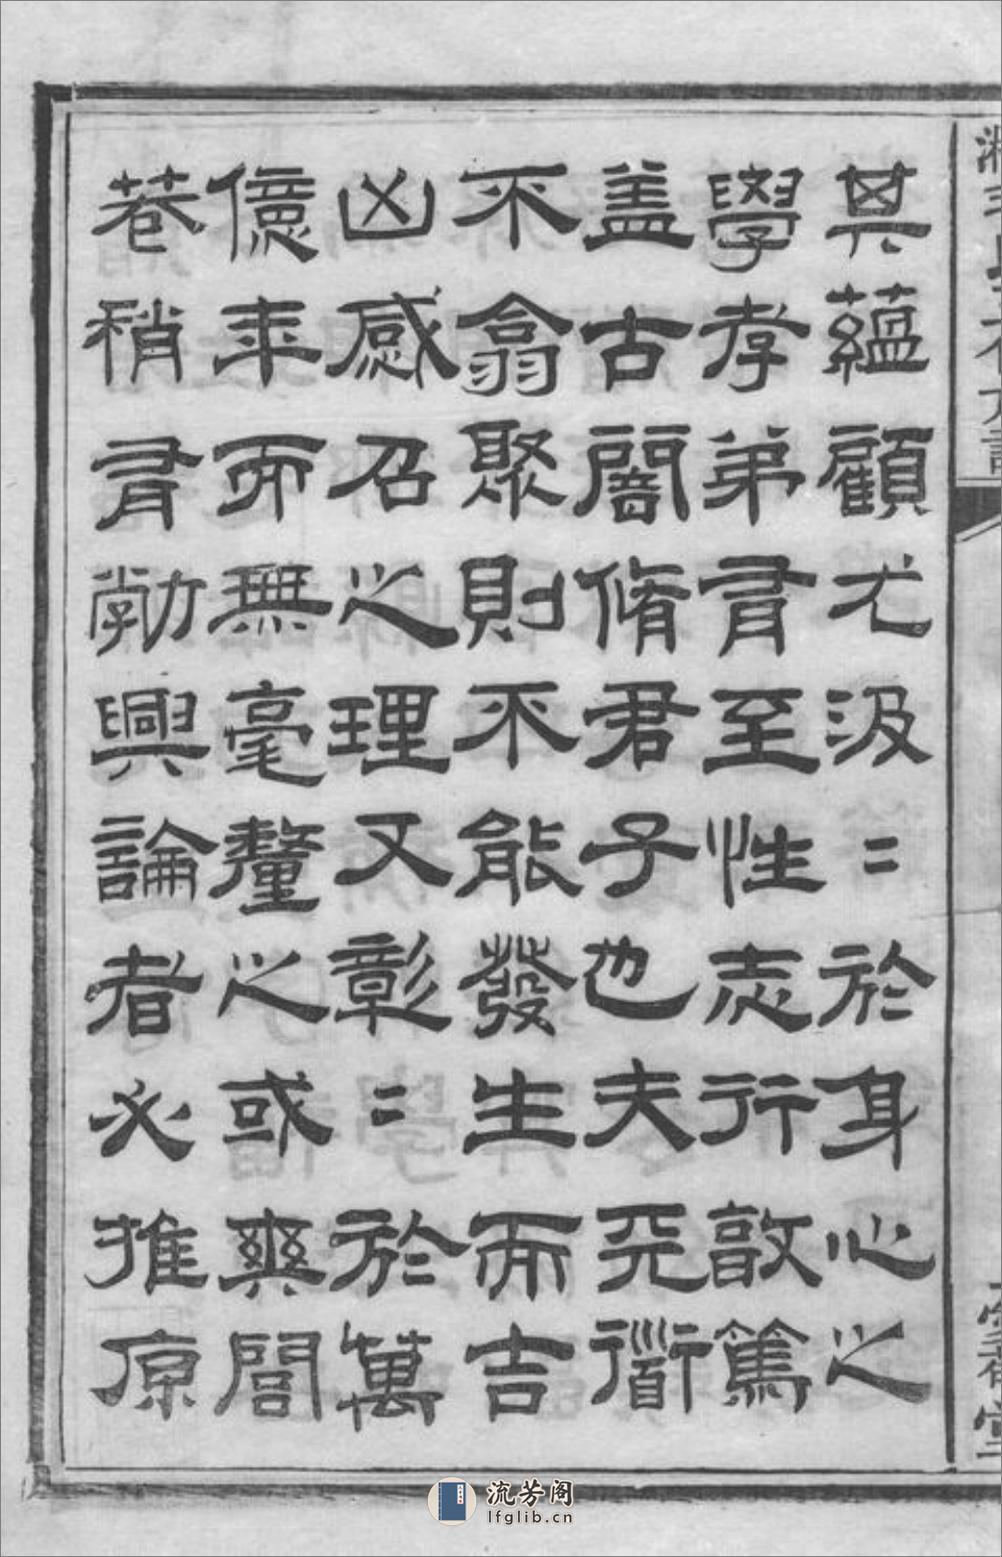 其蘊顧尤汲〻於身心之
學孝弟有至性志行敦篤
盖古闇脩君子也夫天衟
不翕聚則不能發生而吉
凶感召之理又彰〻於萬
億年而無毫釐之或爽閭
巷稍有勃興論者必推原
流芳阁
lfglib.cn